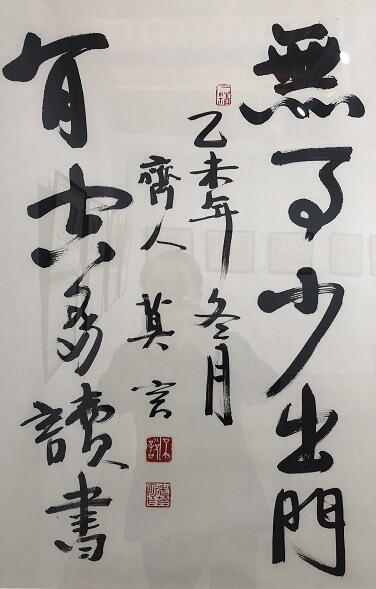 無事少出門
有空多讀書
乙未年 冬月
齊人 莫言